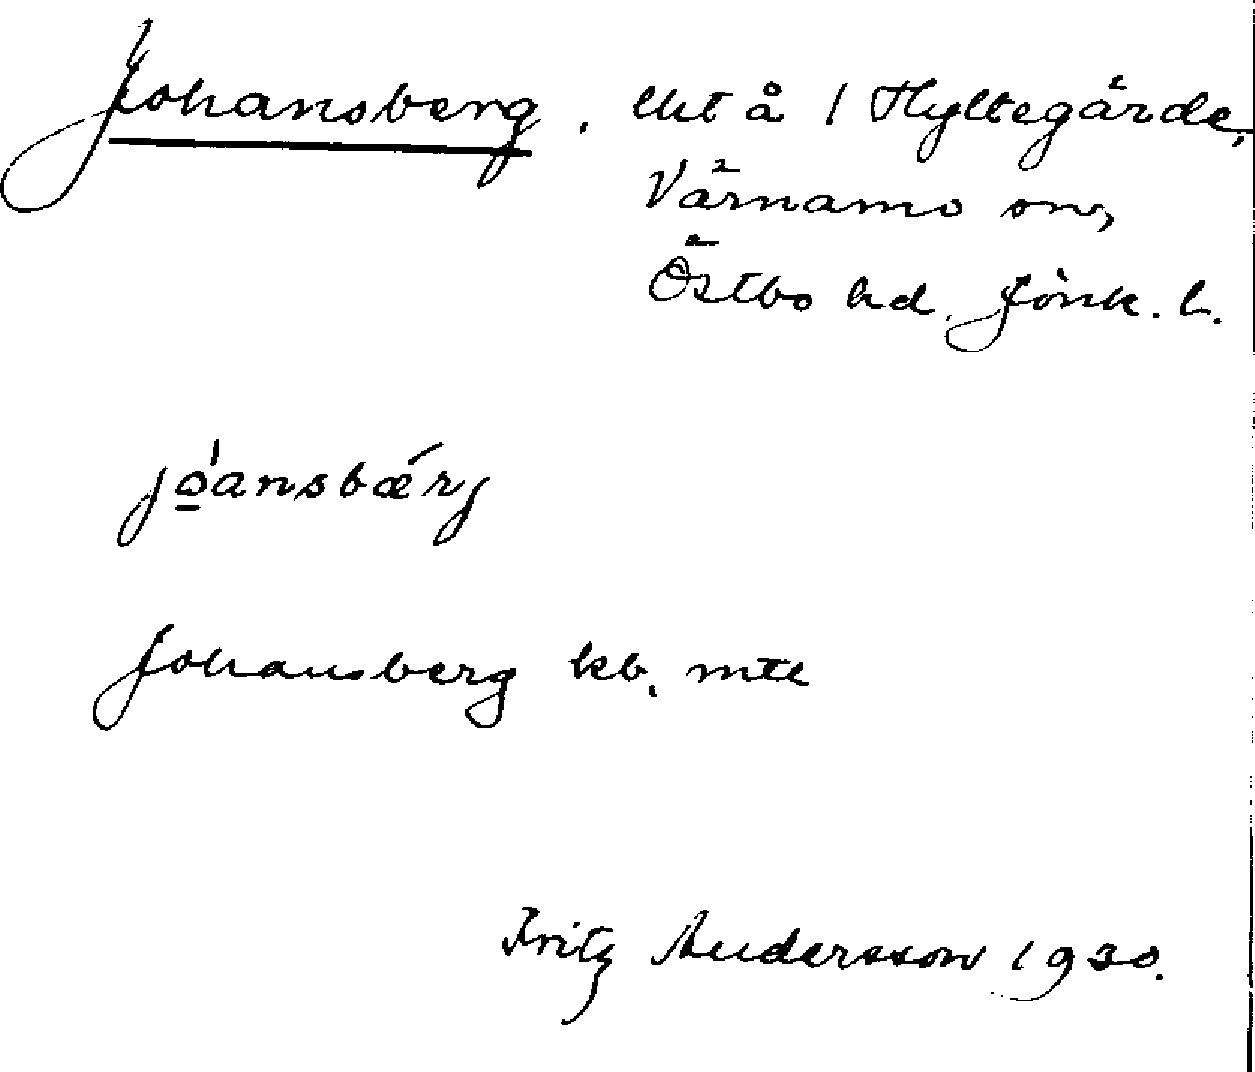 Johansberg. lht å 1 Hyltegärde,
Värnamo sn,
Östbo hd. Jönk. l.
jo̲'ansbǽrj
Johansberg kb. mtl
Fritz Andersson 1930.